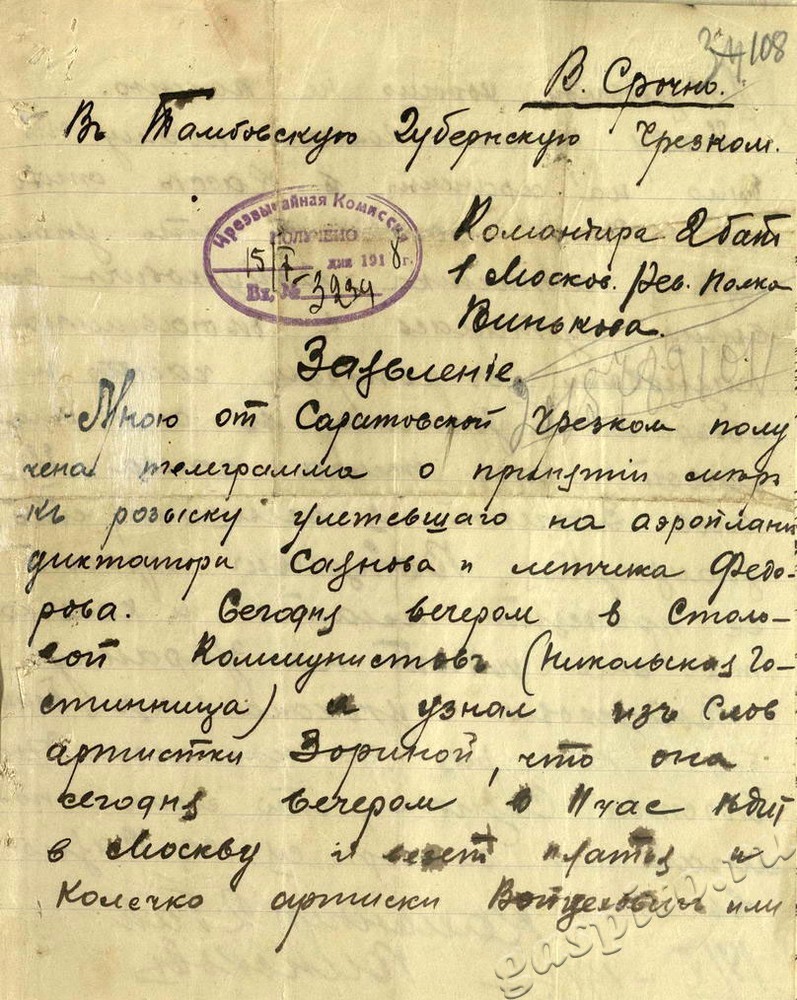 34 108
В. Срочно.
Въ Тамбовскую Губернскую Чрезком.
Чрезвычайная Комиссия
ПОЛУЧЕНО
15/X дня 1918 г.
Вх. № 3234
Командира 2 бат
1 Москов. Рев. полка
Винькова.
Заявленіе.
Мною от Саратовской Чрезком полу
чена телеграмма о принятіи мѣръ
къ розыску улетевшаго на аэроплани
диктатора Саянова и летчика Федо-
рова. Сегодня вечером в Столо-
вой Коммунистовъ (Никольская Го-
стинница) я узнал изъ слов
артистки Зориной, что она
сегодня вечером в 11 час ѣдит
в Москву и везет платья и
Колечко артиски или
gaspito.ru